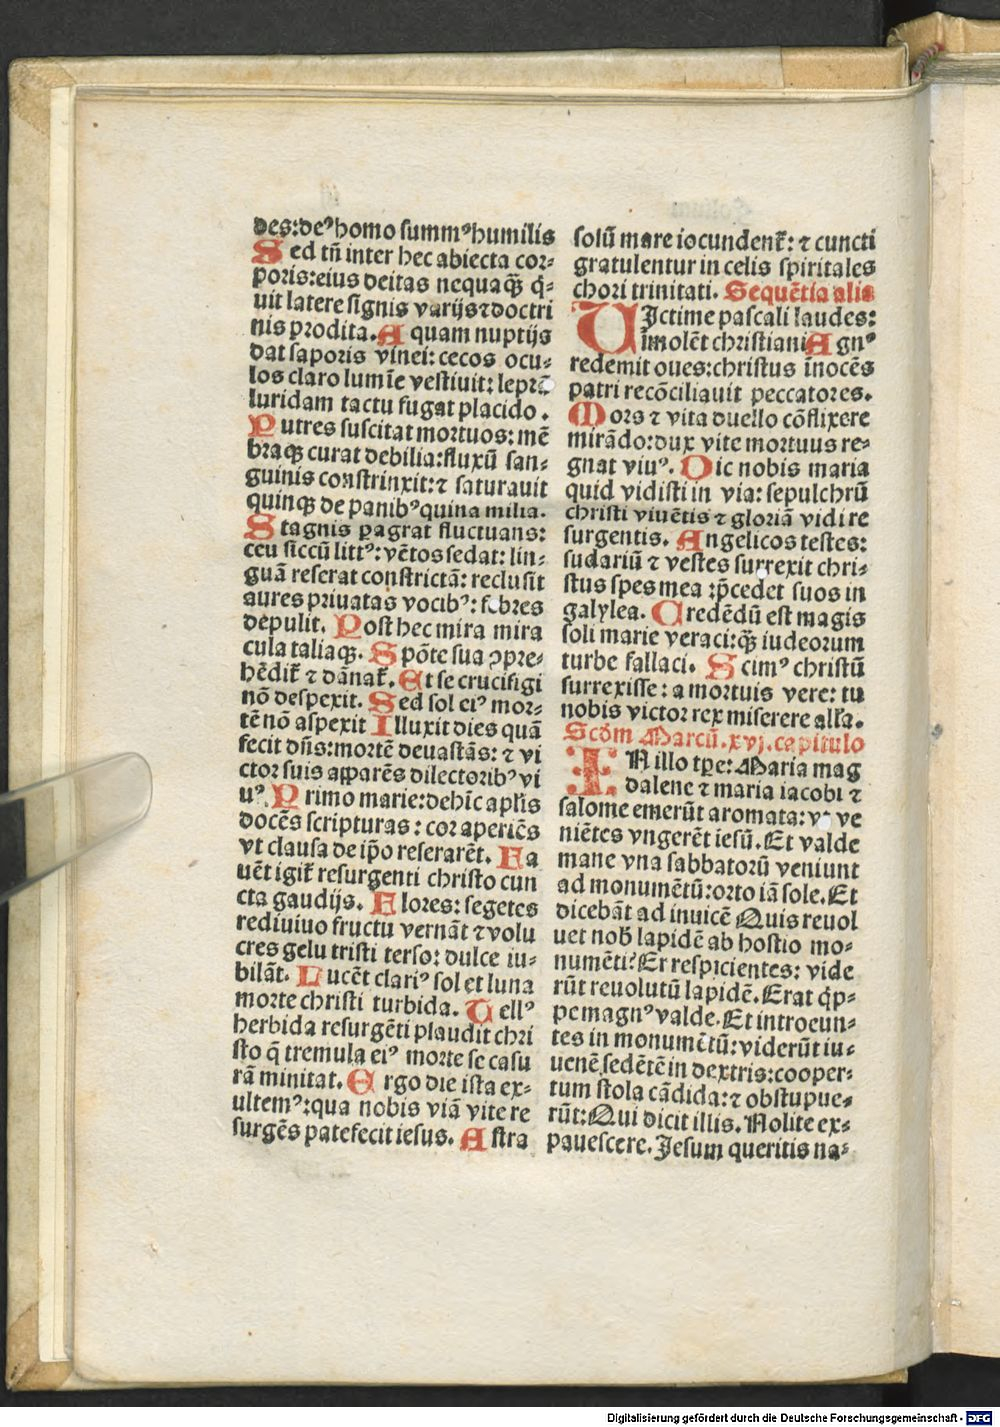 des:deꝰ homo summꝰ humilis
Sed tñ inter hec abiecta cor⸗
poris:eius deitas nequaꝙ̃ q̇⸗
uit latere signis varijs ⁊ doctri
nis prodita. A quam nuptijs
dat saporis vinei: cecos ocu⸗
los claro lumīe vestiuit: leprā
luridam tactu fugat placido.
Putres suscitat mortuos: mē
braqꝫ curat debilia:fluxū san⸗
guinis constrinxit: ⁊ saturauit
quinqꝫ de panibꝰ quina milia.
Stagnis ꝑagrat fluctuans:
ceu siccū littꝰ: vētos sedat: lin⸗
guā reserat constrictā: reclusit
aures priuatas vocibꝰ: febres
depulit. Post hec mira mira
cula taliaqꝫ. Spōte sua ꝯpre⸗
hēdit᷑ ⁊ dānat᷑. Et se crucifigi
nō despexit. Sed sol eiꝰ mor⸗
tē nō aspexit Illuxit dies quā
fecit dn̄s:mortē deuastās: ⁊ vi
ctor suis apparēs dilectoribꝰ vi
uꝰ. Primo marie:dehīc apl̓is
docēs scripturas: cor aperiēs
vt clausa de ip̄o reserarēt. Fa
uēt igit᷑ resurgenti christo cun
cta gaudijs. Flores: segetes
rediuiuo fructu vernāt ⁊ volu
cres gelu tristi terso: dulce iu⸗
bilāt. Lucēt clariꝰ sol et luna
morte christi turbida. Tellꝰ
herbida resurgēti plaudit chri
sto q̄ tremula eiꝰ morte se casu
rā minitat. Ergo die ista ex⸗
ultemꝰ:qua nobis viā vite re
surgēs patefecit iesus. Astra
solū mare iocundent᷑: ⁊ cuncti
gratulentur in celis spiritales
chori trinitati. Sequētia alia
VIctime pascali laudes:
īmolēt christiani Agnꝰ
redemit oues:christus īnocēs
patri recōciliauit peccatores.
Mors ⁊ vita duello cōflixere
mirādo:dux vite mortuus re⸗
gnat viuꝰ. Dic nobis maria
quid vidisti in via: sepulchrū
christi viuētis ⁊ gloriā vidi re
surgentis. Angelicos testes:
sudariū ⁊ vestes surrexit chri⸗
stus spes mea :p̄cedet suos in
galylea. Credēdū est magis
soli marie veraci:ꝙ̃ iudeorum
turbe fallaci. Scimꝰ christū
surrexisse: a mortuis vere: tu
nobis victor rex miserere all̓a.
Scḋm Marcū.xvj.capitulo
IN illo tꝑe: Maria mag
dalene ⁊ maria iacobi ⁊
salome emerūt aromata: vt ve
niētes vngerēt iesū. Et valde
mane vna sabbatorū veniunt
ad monumētū: orto iā sole. Et
dicebāt ad inuicē Quis reuol
uet nob̄ lapidē ab hostio mo⸗
numēti? Et respicientes: vide
rūt reuolutū lapidē. Erat q̇p⸗
pe magnꝰ valde. Et introeun⸗
tes in monumētū: viderūt iu⸗
uenē sedētē in dextris:cooper⸗
tum stola cādida: ⁊ obstupue⸗
rūt: Qui dicit illis. Nolite ex⸗
pauescere. Jesum queritis na⸗
Digitalisierung gefördert durch die Deutsche Forschungsgemeinschaft - DFG